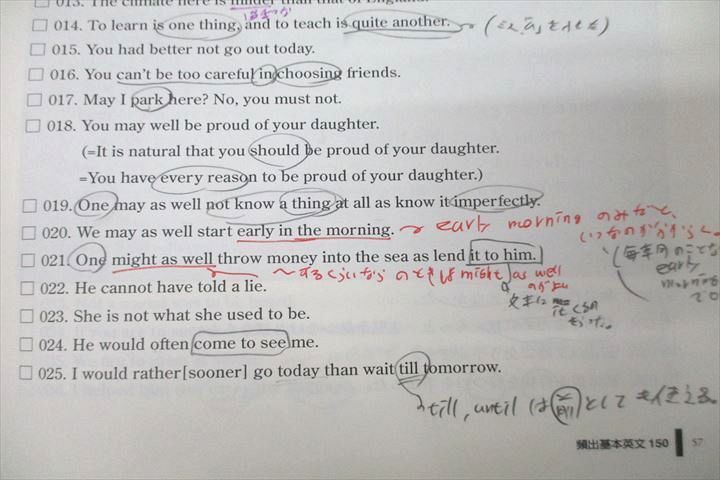 013. The climate here is milder than that of England.
□ 014. To learn is one thing, and to teach is quite another.
□ 015. You had better not go out today.
□ 016. You can't be too careful in choosing friends.
□ 017. May I park here? No, you must not.
□ 018. You may well be proud of your daughter.
(=It is natural that you should be proud of your daughter.
=You have every reason to be proud of your daughter.)
□ 019. One may as well not know a thing at all as know it imperfectly.
□ 020. We may as well start early in the morning.
early morning のみだと、
early
morning
□ 021. One might as well throw money into the sea as lend it to him.
〜するくらいなら のときは might as well
□ 022. He cannot have told a lie.
□ 023. She is not what she used to be.
□ 024. He would often come to see me.
□ 025. I would rather[sooner] go today than wait till tomorrow.
till, until は として も使える。
頻出基本英文 150 57